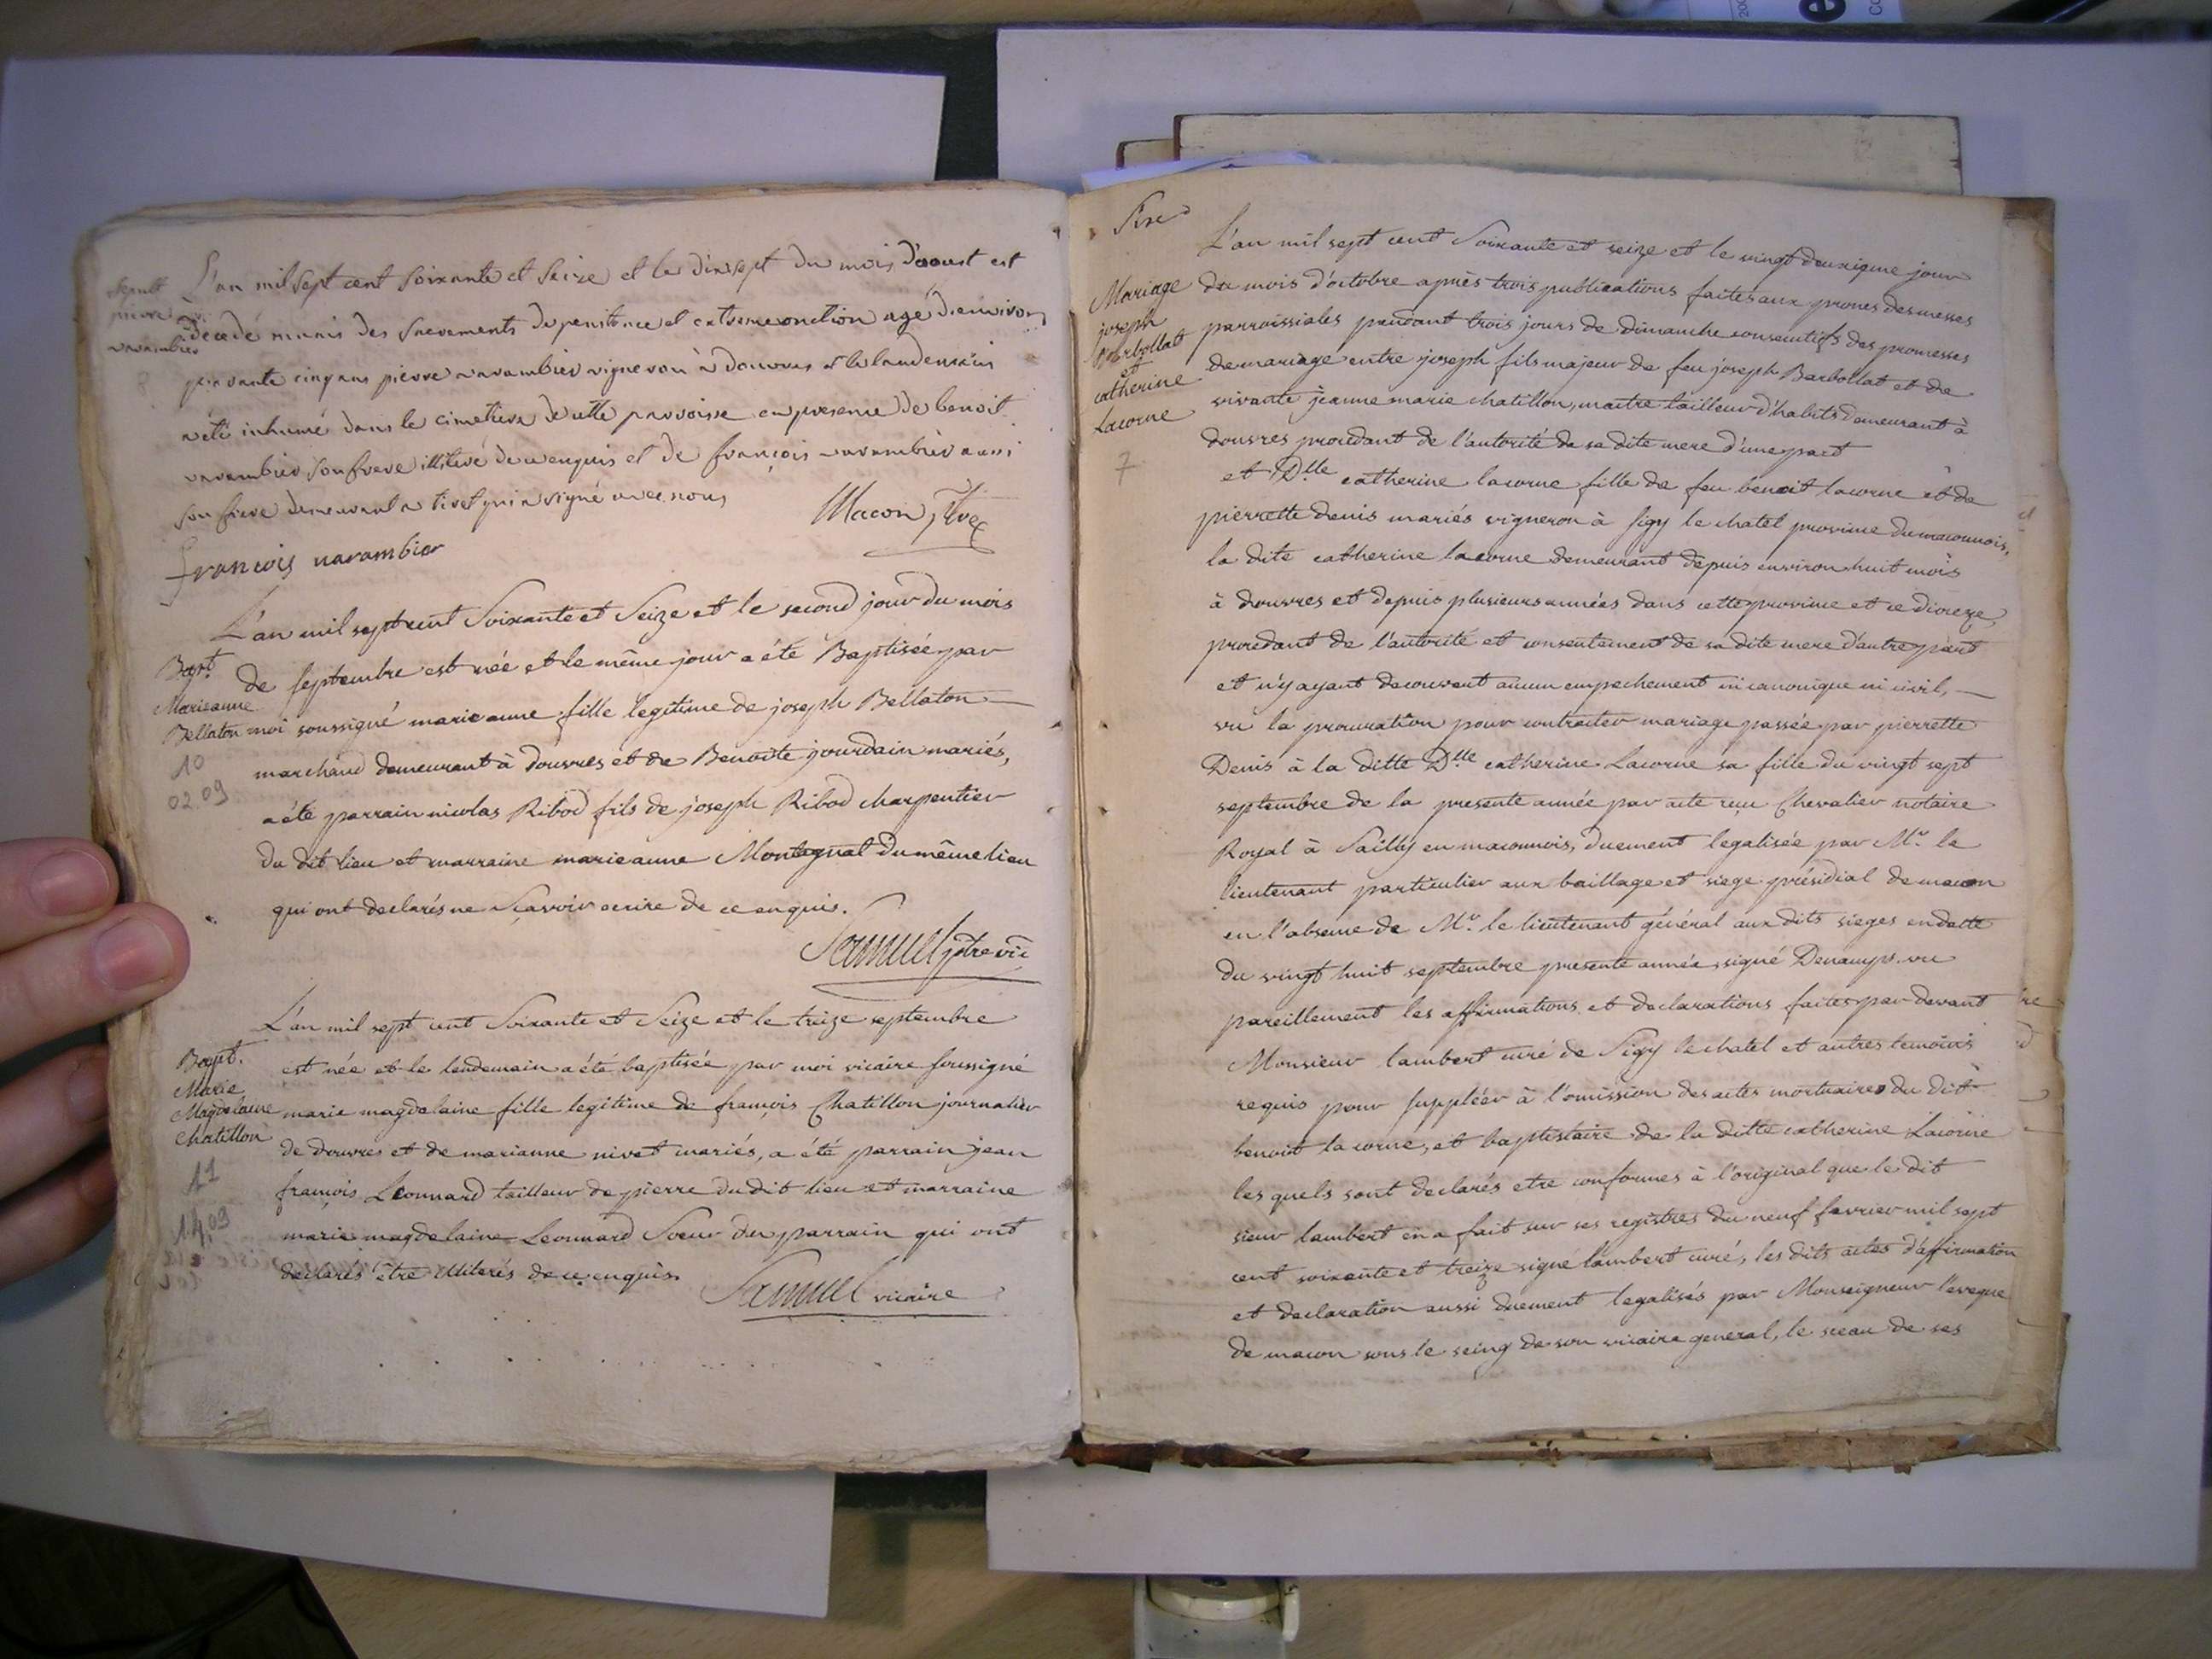 Sepult
pierre
varambier
L'an mil sept cent soixante et seize et le dix sept du mois d'aoust est
décedé munis des sacrements de penitence et extreme onction agé d'environ
cinq ans pierre varambier vigneron à douvres et le landemain
a été inhumé dans le cimetiere de cette parroisse en presence de benoit
varambier son frere illiteré de ce enquis et de françois varambier aussi
son frere demeurant a qui a signé avec nous
Macon
francois varambier
L'an mil sept cent Soixante et Seize et le second jour du mois
Bapt.
Marieanne
Bellaton
10
02.09
de septembre est née et le même jour a été Baptisée par
moi soussigné marieanne fille legitime de joseph Bellaton
marchand demeurant à douvres et de Benoite jourdain mariés,
a été parrain nicolas Ribod fils de joseph Ribod charpentier
du dit lieu et marraine marieanne Montagnat du même lieu
qui ont declarés ne Scavoir ecrire de ce enquis.
Samuel ptre vic
L'an mil sept cent Soixante et Seize et le treize septembre
Bapt.
Marie
Magdelaine
chatillon
11
14.09
est née et le lendemain a été baptisée par moi vicaire soussigné
marie magdelaine fille legitime de françois Chatillon journalier
de douvres et de marianne nivet mariés, a été parrain jean
françois Leonnard tailleur de pierre du dit lieu et marraine
marie magdelaine Leonnard Soeur du parrain qui ont
declarés être illiterés de ce enquis.
Samuel vicaire
L'an mil sept cent Soixante et seize et le vingt deuxieme jour
Mariage
joseph
Barbollat
et
catherine
Lacorne
7
du mois d'octobre après trois publications faites aux prones des messes
parroissiales pendant trois jours de dimanche consecutifs des promesses
de mariage entre joseph fils majeur de feu joseph Barbollat et de
vivante jeanne marie chatillon, maitre tailleur d'habits demeurant à
douvres procedant de l'autorité de sa dite mere d'une part
et Dlle catherine lacorne fille de feu benoit lacorne et de
pierrette denis mariés vigneron à sigy le chatel province du maconnois,
la dite catherine lacorne demeurant depuis environ huit mois
à douvres et depuis plusieurs années dans cette province et ce dioceze,
procedant de l'autorité et consentement de sa dite mere d'autre part
et n'y ayant decouvert aucun empechement ni canonique ni civil,
vu la procuration pour contracter mariage passée par pierrette
Denis à la ditte Dlle catherine Lacorne sa fille du vingt sept
septembre de la presente année par acte reçu Chevalier notaire
Royal à Sailly en maconnois, duement legalisée par Mr. le
lieutenant particulier aux baillage et siege présidial de macon
en l'absence de Mr. le lieutenant général aux dits sieges en datte
du vingt huit septembre presente année, signé Denamps. vu
pareillement les affirmations et declarations faites par devant
Monsieur lambert curé de Sigy le chatel et autres temoins
requis pour suppléer à l'omission des actes mortuaires du dit
benoit lacorne, et baptistaire de la ditte catherine Lacorne
les quels sont declarés etre conformes à l'original que le dit
sieur lambert en a fait sur ses registres du neuf fevrier mil sept
cent soixante et treize signé lambert curé, les dits actes d'affirmation
et declaration aussi duement legalisés par Monseigneur l'eveque
de macon sous le seing de son vicaire general, le sceau de ses